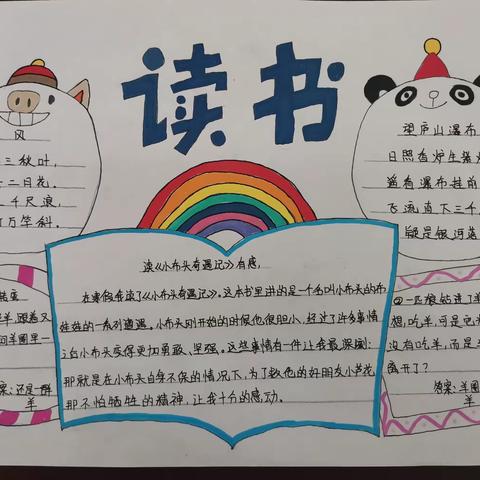 读书
风
三秋叶,
二月花。
千尺浪,
万竿斜。
望庐山瀑布
日照香炉生紫
遥看瀑布挂前
飞流直下三千
疑是银河落
读《小布头奇遇记》有感,
在寒假有读了《小布头奇遇记》。这本书里讲的是一个名叫小布头的布
娃娃的一系列遭遇。小布头刚开始的时候也很胆小,经过了许多事情
让小布头变得更加勇敢、坚强。这些事情有件让我最深刻:
那就是在小布头自身不保的情况下,为了救他的好朋友小芦花,
那不怕牺牲的精神,让我十分的感动。
羊,跟着又
问羊圈里一
案:还是一群
羊
②一匹狼钻进了羊
想,吃羊,可是它
没有吃羊,而是
离开了?
答案:羊圈
羊